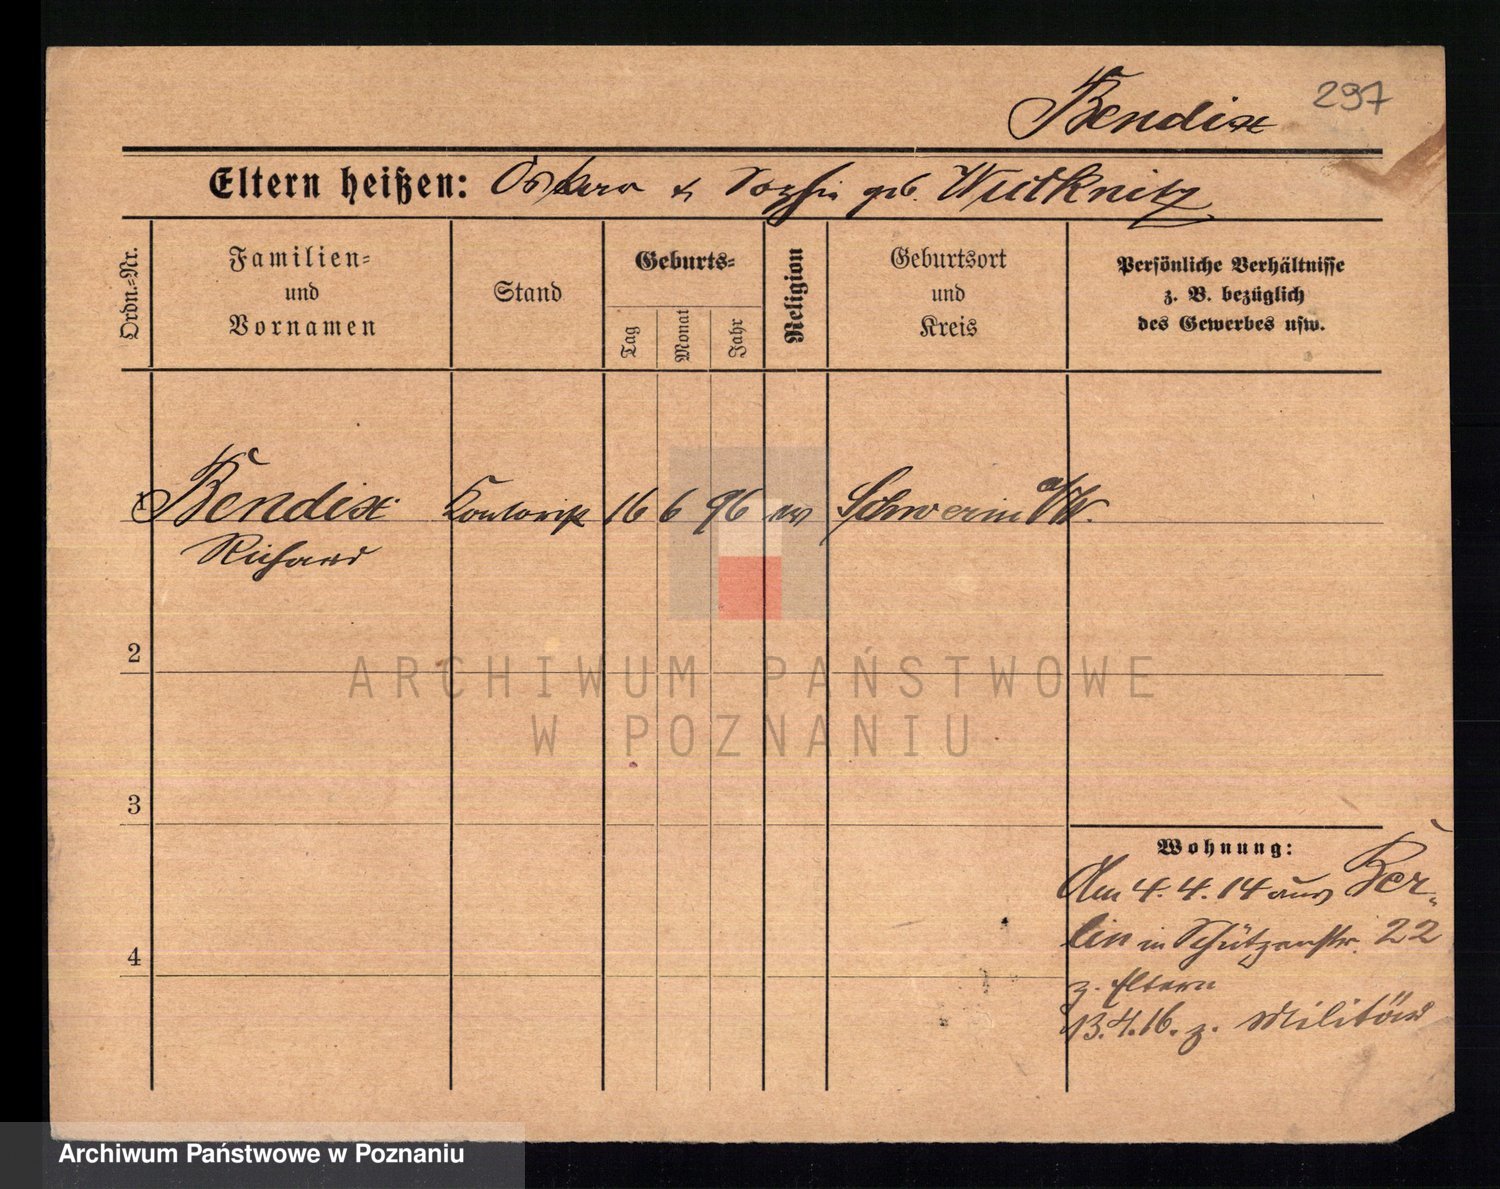 Bendix 297
Eltern heißen: Oskar & Sophie geb. Wutknitz
Ordn.-Nr.
Familien-
und
Vornamen
Stand
Geburts-
Tag
Monat
Jahr
Religion
Geburtsort
und
Kreis
Persönliche Verhältnisse
z. B. bezüglich
des Gewerbes usw.
1 Bendix Kontorist 16 6 96 ev Schwerin a/W.
Richard
2
ARCHIWUM PAŃSTWOWE
W POZNANIU
3
Wohnung:
Am 4.4.14 aus Ber-
lin in Schützenstr. 22
4
z. Eltern
13.4.16. z. Militär
Archiwum Państwowe w Poznaniu